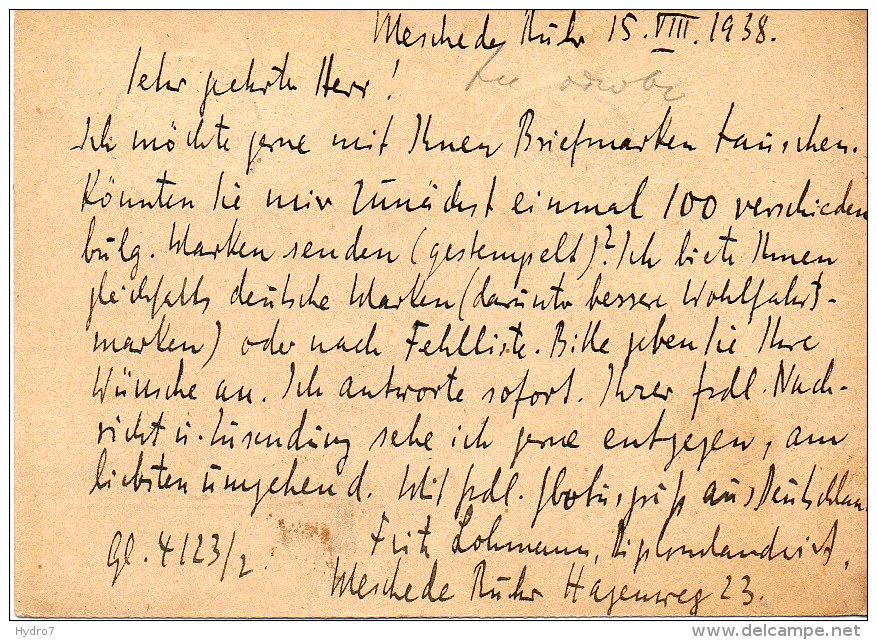 Meschede Ruhr 15.VIII.1938.
Sehr geehrter Herr!
Ich möchte gerne mit Ihnen Briefmarken tauschen.
Könnten Sie mir zunächst einmal 100 verschieden
bulg. Marken senden (gestempelt)? Ich biete Ihnen
gleichfalls deutsche Marken (darunter bessere Wohlfahrts-
marken) oder nach Fehlliste. Bitte geben Sie Ihre
Wünsche an. Ich antworte sofort. Ihrer frdl. Nach-
richt u. Zusendung sehe ich gerne entgegen, am
liebsten umgehend. Mit frdl. Globusgruß aus Deutschlan
Gl. 4123/2 Fritz Lohmann, Diplomlandwirt,
Meschede Ruhr Hagenweg 23.
Hydro7
www.delcampe.net